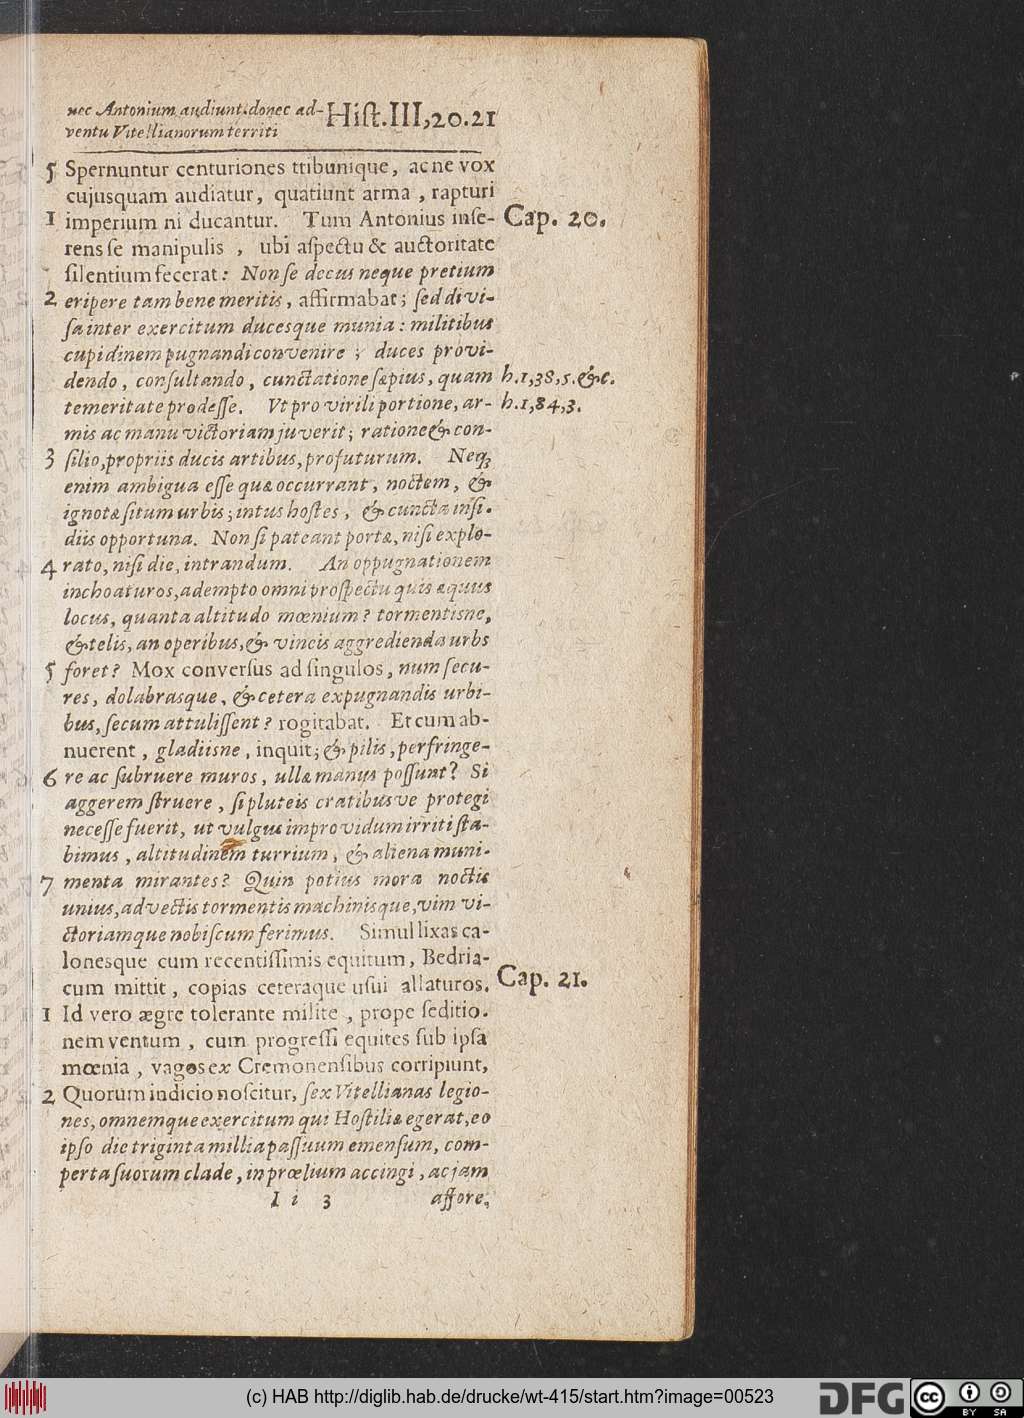 nec Antonium audiunt, donec ad-
ventu Vitellianorum territi
Hiſt. III, 20. 21
5 Spernuntur centuriones tribunique, ac ne vox
cujusquam audiatur, quatiunt arma, rapturi
1 imperium ni ducantur. Tum Antonius inſe-
Cap. 20.
rens ſe manipulis, ubi aſpectu & auctoritate
ſilentium fecerat: Non ſe decus neque pretium
2 eripere tam bene meritis, affirmabat; ſed divi-
ſa inter exercitum ducesque munia: militibus
cupidinem pugnandi convenire; duces provi-
dendo, conſultando, cunctatione ſæpius, quam
h. 1, 38, 5. &c.
temeritate prodeſſe. Vt pro virili portione, ar-
h. 1, 84, 3.
mis ac manu victoriam juverit; ratione & con-
3 ſilio, propriis ducis artibus, profuturum. Neq;
enim ambigua eſſe quæ occurrant, noctem, &
ignotæ ſitum urbis; intus hoſtes, & cuncta inſi-
diis opportuna. Non ſi pateant portæ, niſi explo-
4 rato, niſi die, intrandum. An oppugnationem
inchoaturos, adempto omni proſpectu quis æquus
locus, quanta altitudo mœnium? tormentisne,
& telis, an operibus, & vincis aggredienda urbs
5 foret? Mox converſus ad ſingulos, num ſecu-
res, dolabrasque, & cetera expugnandis urbi-
bus, ſecum attuliſſent? rogitabat. Et cum ab-
nuerent, gladiisne, inquit; & pilis, perfringe-
6 re ac ſubruere muros, ullæ manus poſſunt? Si
aggerem ſtruere, ſi pluteis cratibusve protegi
neceſſe fuerit, ut vulgus improvidum irriti ſta-
bimus, altitudinem turrium, & aliena muni-
7 menta mirantes? Quin potius mora noctis
unius, advectis tormentis machinisque, vim vi-
ctoriamque nobiſcum ferimus. Simul lixas ca-
lonesque cum recentiſſimis equitum, Bedria-
cum mittit, copias ceteraque uſui allaturos.
Cap. 21.
1 Id vero ægre tolerante milite, prope ſeditio-
nem ventum, cum progreſſi equites ſub ipſa
mœnia, vagos ex Cremonenſibus corripiunt,
2 Quorum indicio noſcitur, ſex Vitellianas legio-
nes, omnemque exercitum qui Hoſtiliæ egerat, eo
ipſo die triginta millia paſſuum emenſum, com-
perta ſuorum clade, in prœlium accingi, ac jam
I i 3
affore,
(c) HAB http://diglib.hab.de/drucke/wt-415/start.htm?image=00523
DFG
cc BY SA